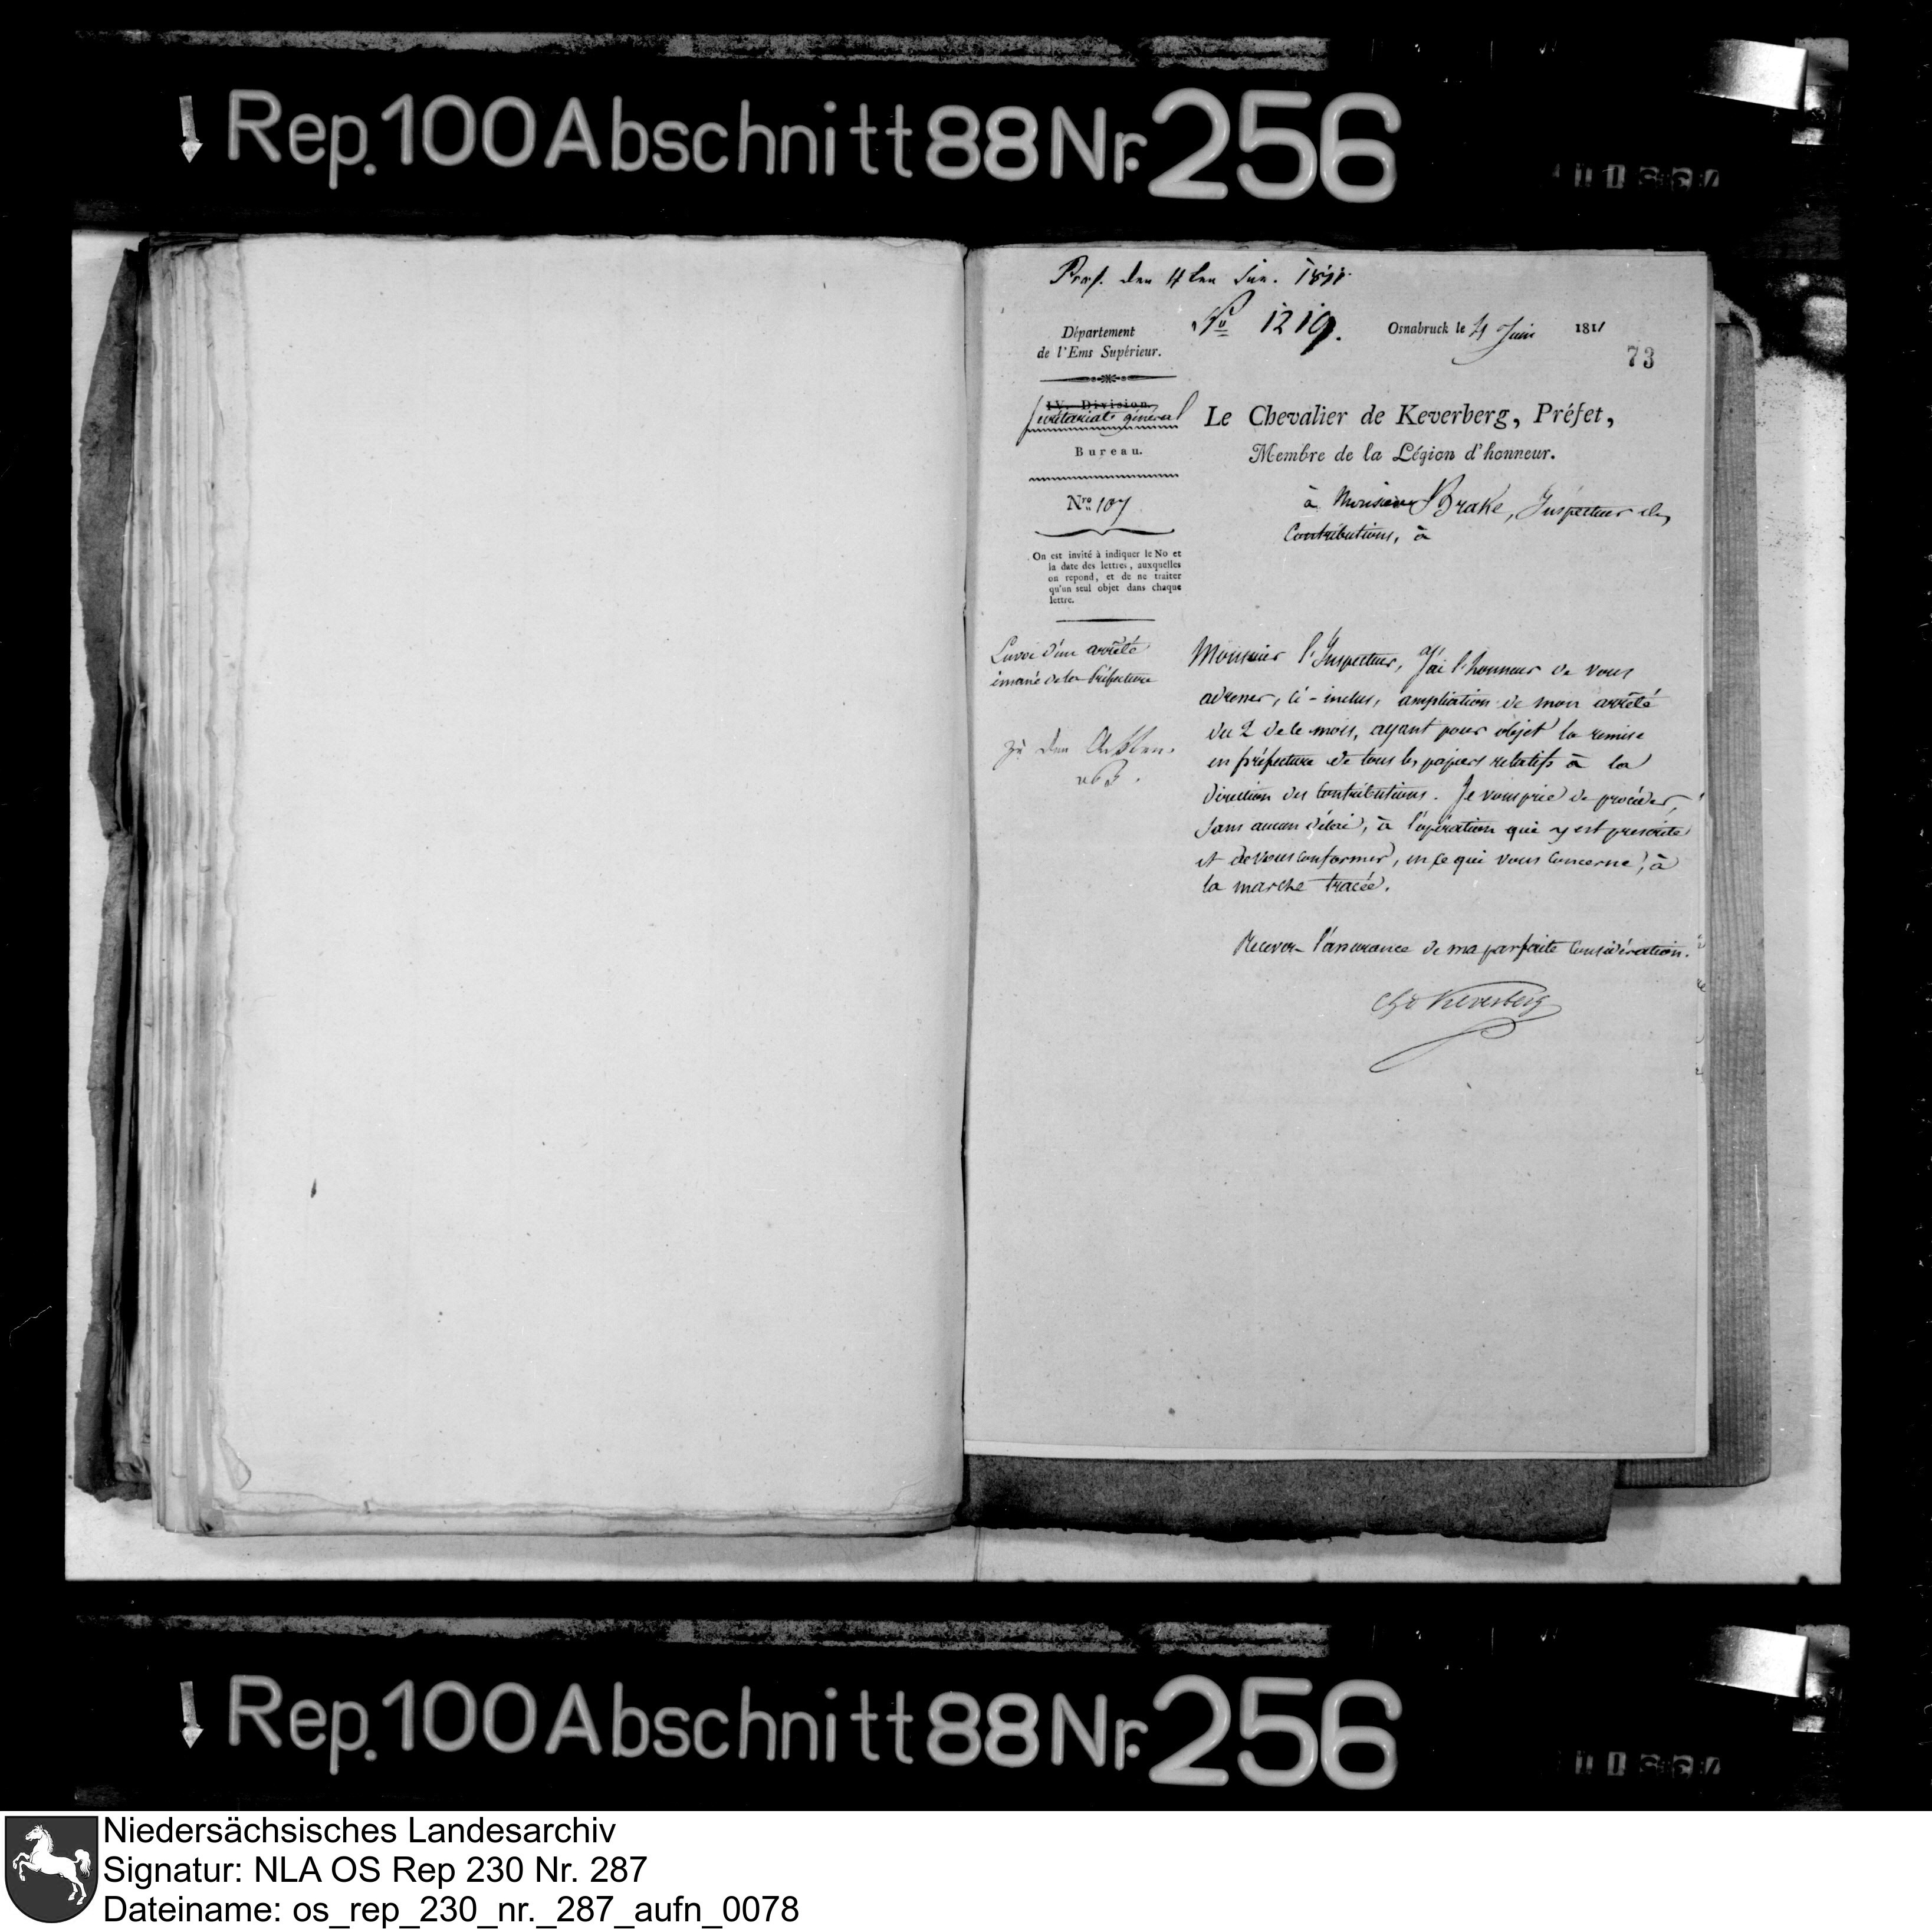 Rep. 100 Abschnitt 88 Nr. 256
Pras. den 4ten Jun. 1811.
No 1219.
Osnabruck le 4 Juin 1811
73
Département
de l'Ems Supérieur.
IV. Division.
Secrétariat général
Bureau.
Nro 107
On est invité à indiquer le No et
la date des lettres, auxquelles
on repond, et de ne traiter
qu'un seul objet dans chaque
lettre.
Envoi d'un arrêté
émané de la Préfecture
zu den Ackten.
Le Chevalier de Keverberg, Préfet,
Membre de la Légion d'honneur.
à Monsieur Brake, Inspecteur des
Contributions, à
Monsieur l'Inspecteur, J'ai l'honneur de vous
adresser, ci-inclus, ampliation de mon arrêté
du 2 de ce mois, ayant pour objet la remise
en préfecture de tous les papiers relatifs à la
direction des Contributions. Je vous prie de procéder,
sans aucun délai, à l'opération qui y est prescrite
et de vous conformer, en ce qui vous concerne, à
la marche tracée.
Recevez l'assurance de ma parfaite Considération.
Chr de Keverberg
Rep. 100 Abschnitt 88 Nr. 256
Niedersächsisches Landesarchiv
Signatur: NLA OS Rep 230 Nr. 287
Dateiname: os_rep_230_nr._287_aufn_0078